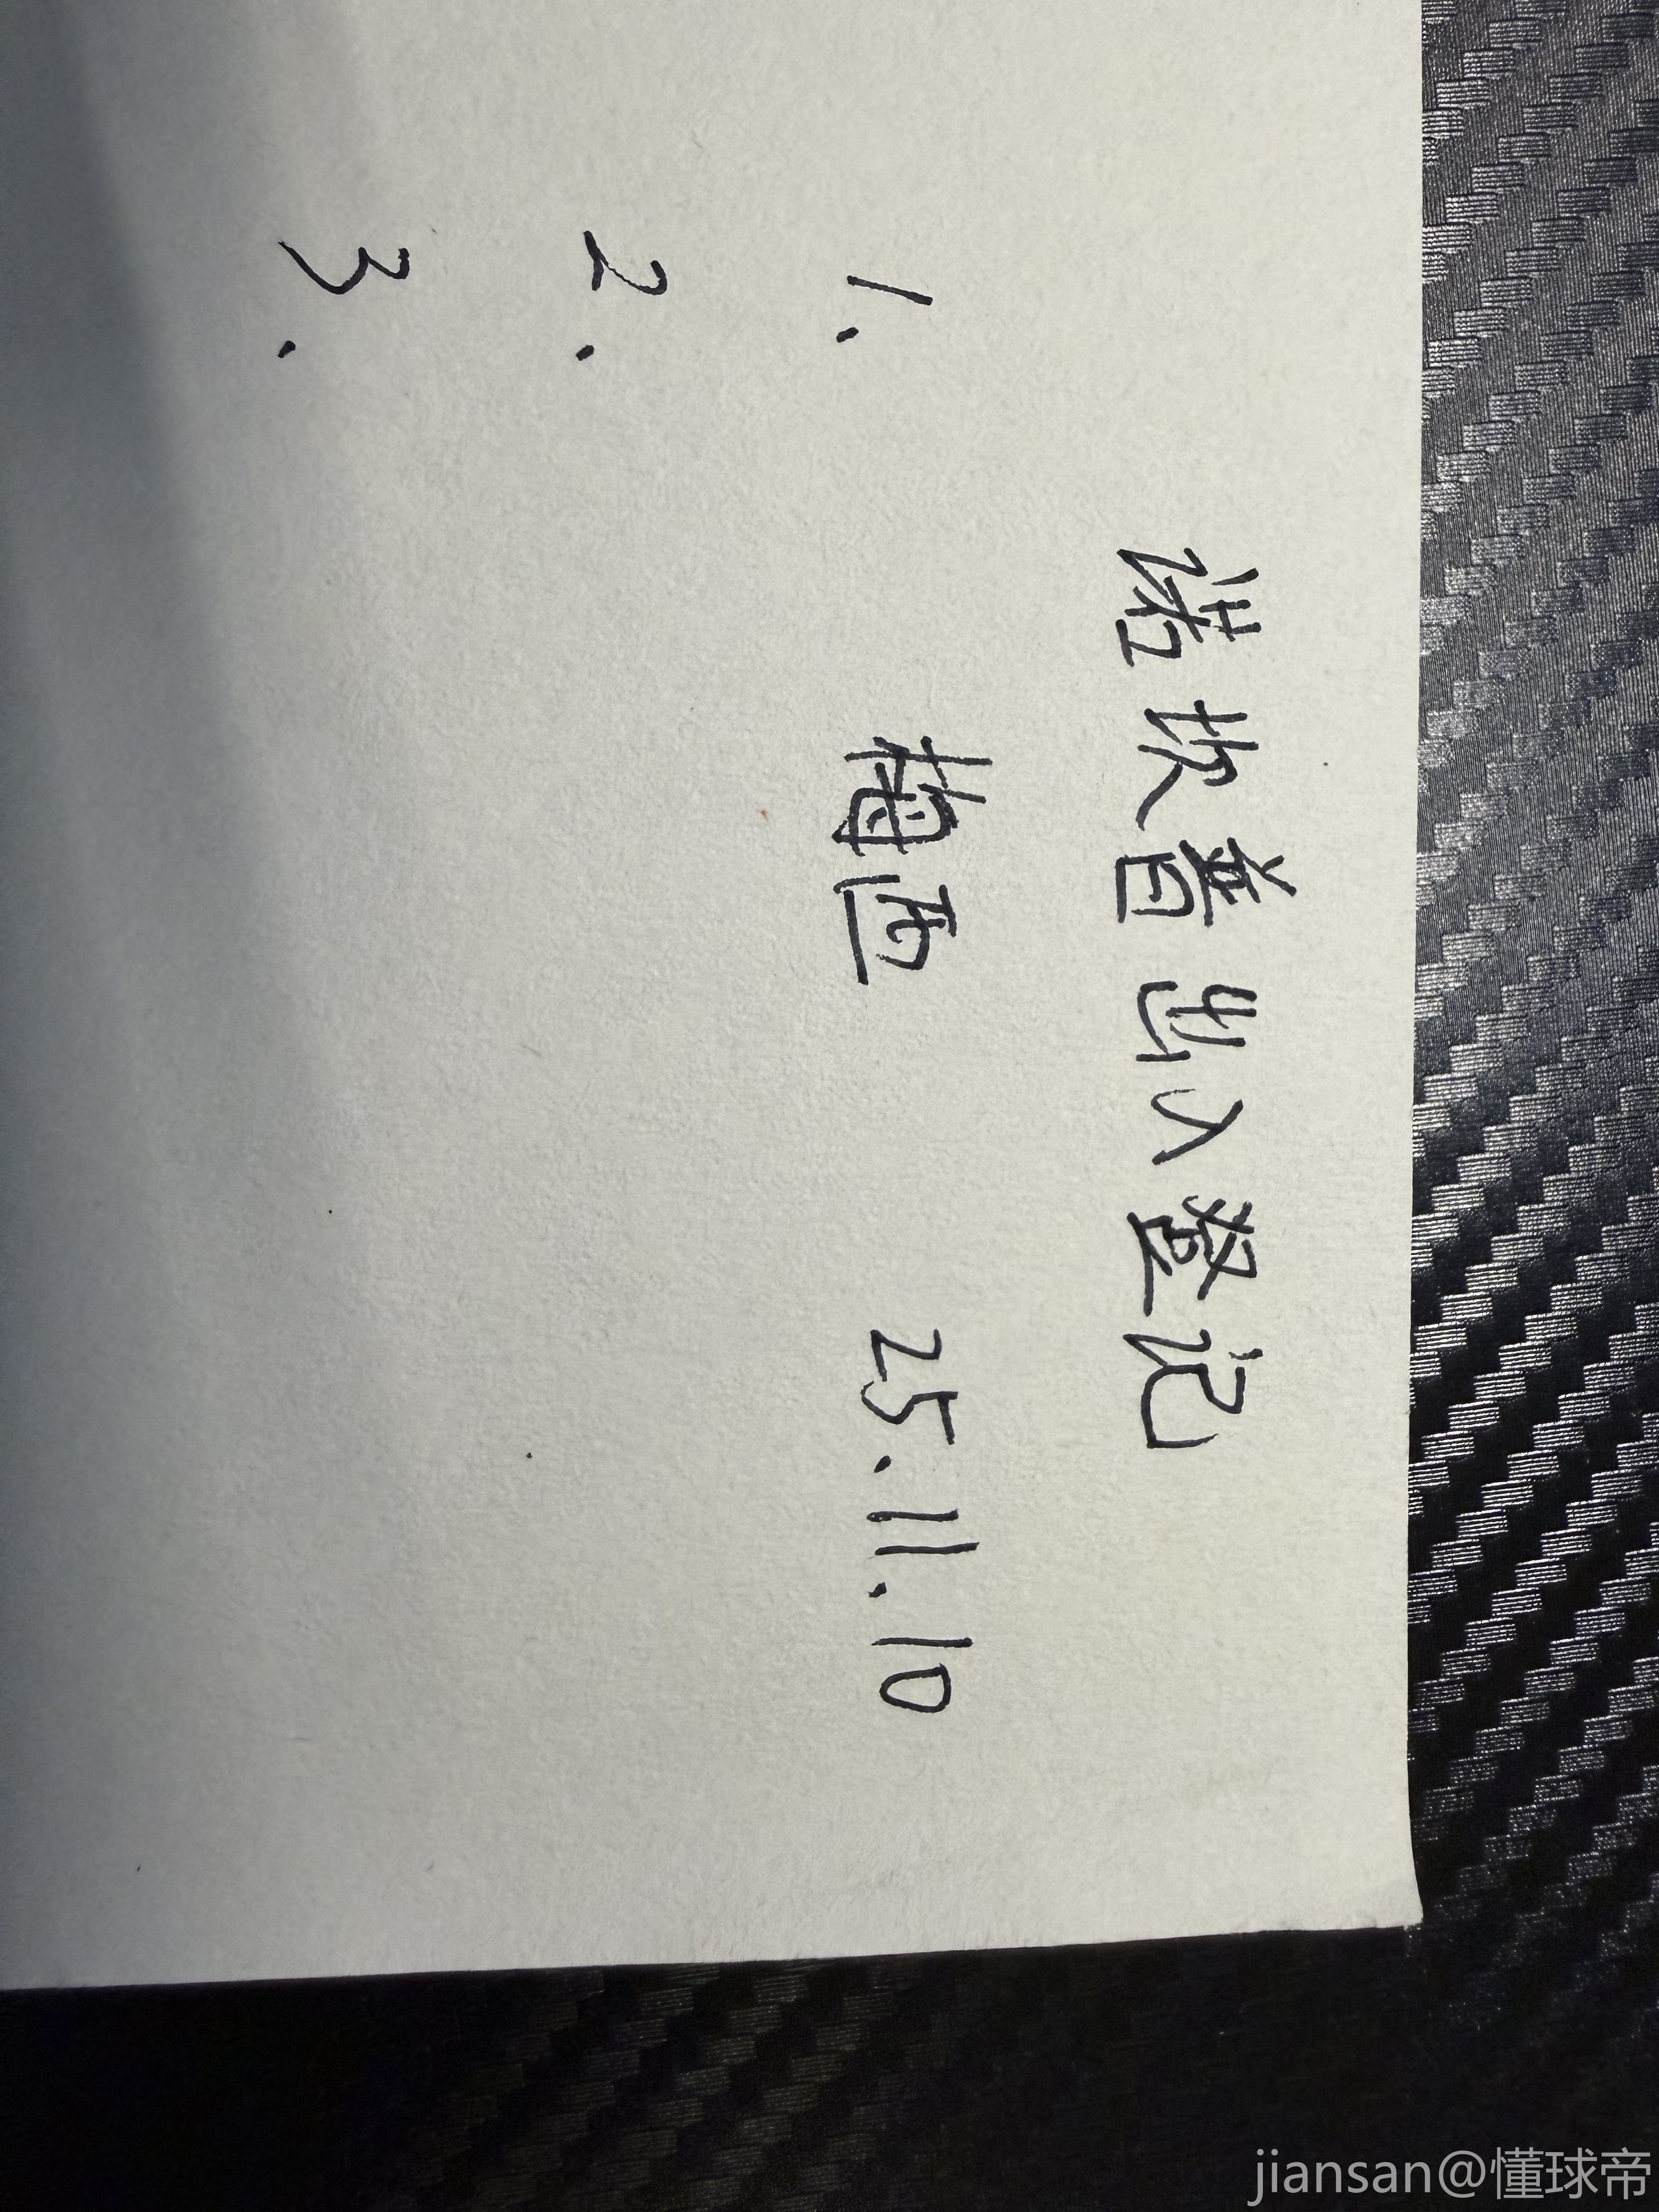 诺坎普出入登记
1. 梅西 25.11.10
2.
3.
jiansan@懂球帝